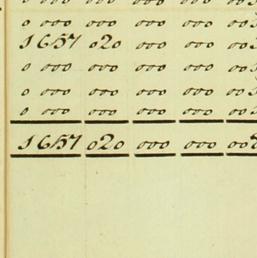 0 000 000 000 000 00
0 000 000 000 000 00
1657 020 000 000 00
0 000 000 000 000 00
0 000 000 000 000 00
0 000 000 000 000 00
1657 020 000 000 00